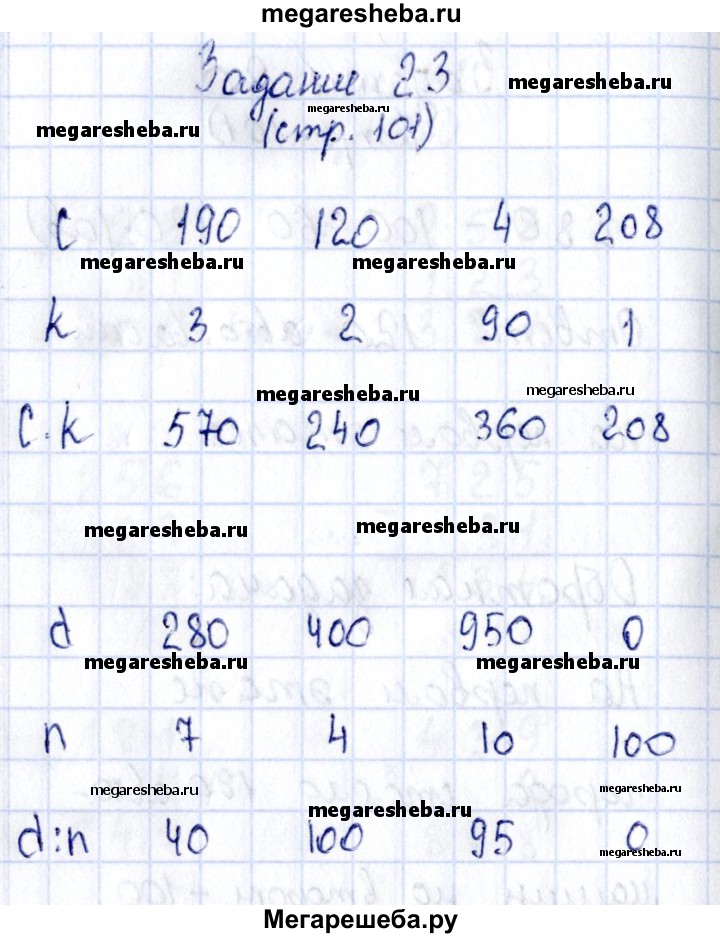 megaresheba.ru
Задание 23
megaresheba.ru
megaresheba.ru
megaresheba.ru
(стр. 101)
c 190 120 4 208
megaresheba.ru megaresheba.ru
k 3 2 90 1
megaresheba.ru megaresheba.ru
c·k 570 240 360 208
megaresheba.ru megaresheba.ru
d 280 400 950 0
megaresheba.ru megaresheba.ru
n 7 4 10 100
megaresheba.ru megaresheba.ru
megaresheba.ru
d:n 40 100 95 0
megaresheba.ru
Мегарешеба.ру